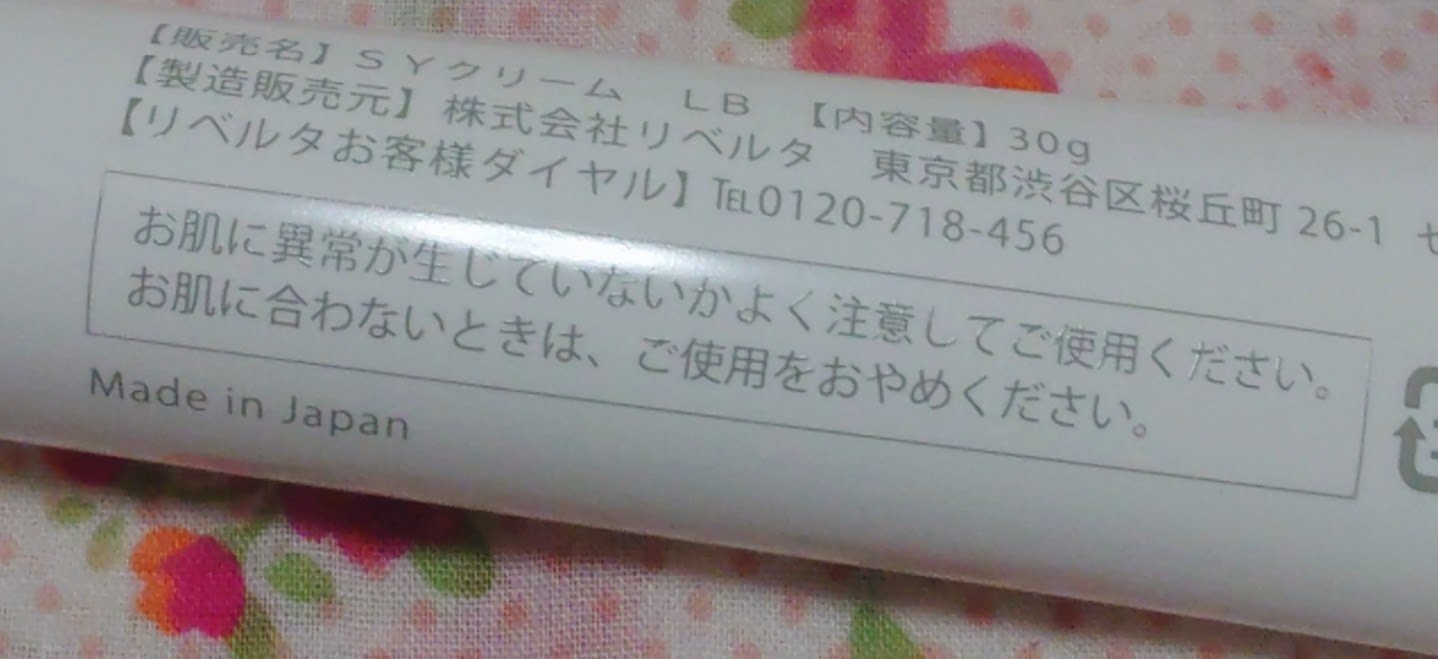 【販売名】ＳＹクリーム　ＬＢ　【内容量】30g
【製造販売元】株式会社リベルタ　東京都渋谷区桜丘町 26-1
【リベルタお客様ダイヤル】℡0120-718-456
お肌に異常が生じていないかよく注意してご使用ください。
お肌に合わないときは、ご使用をおやめください。
Made in Japan